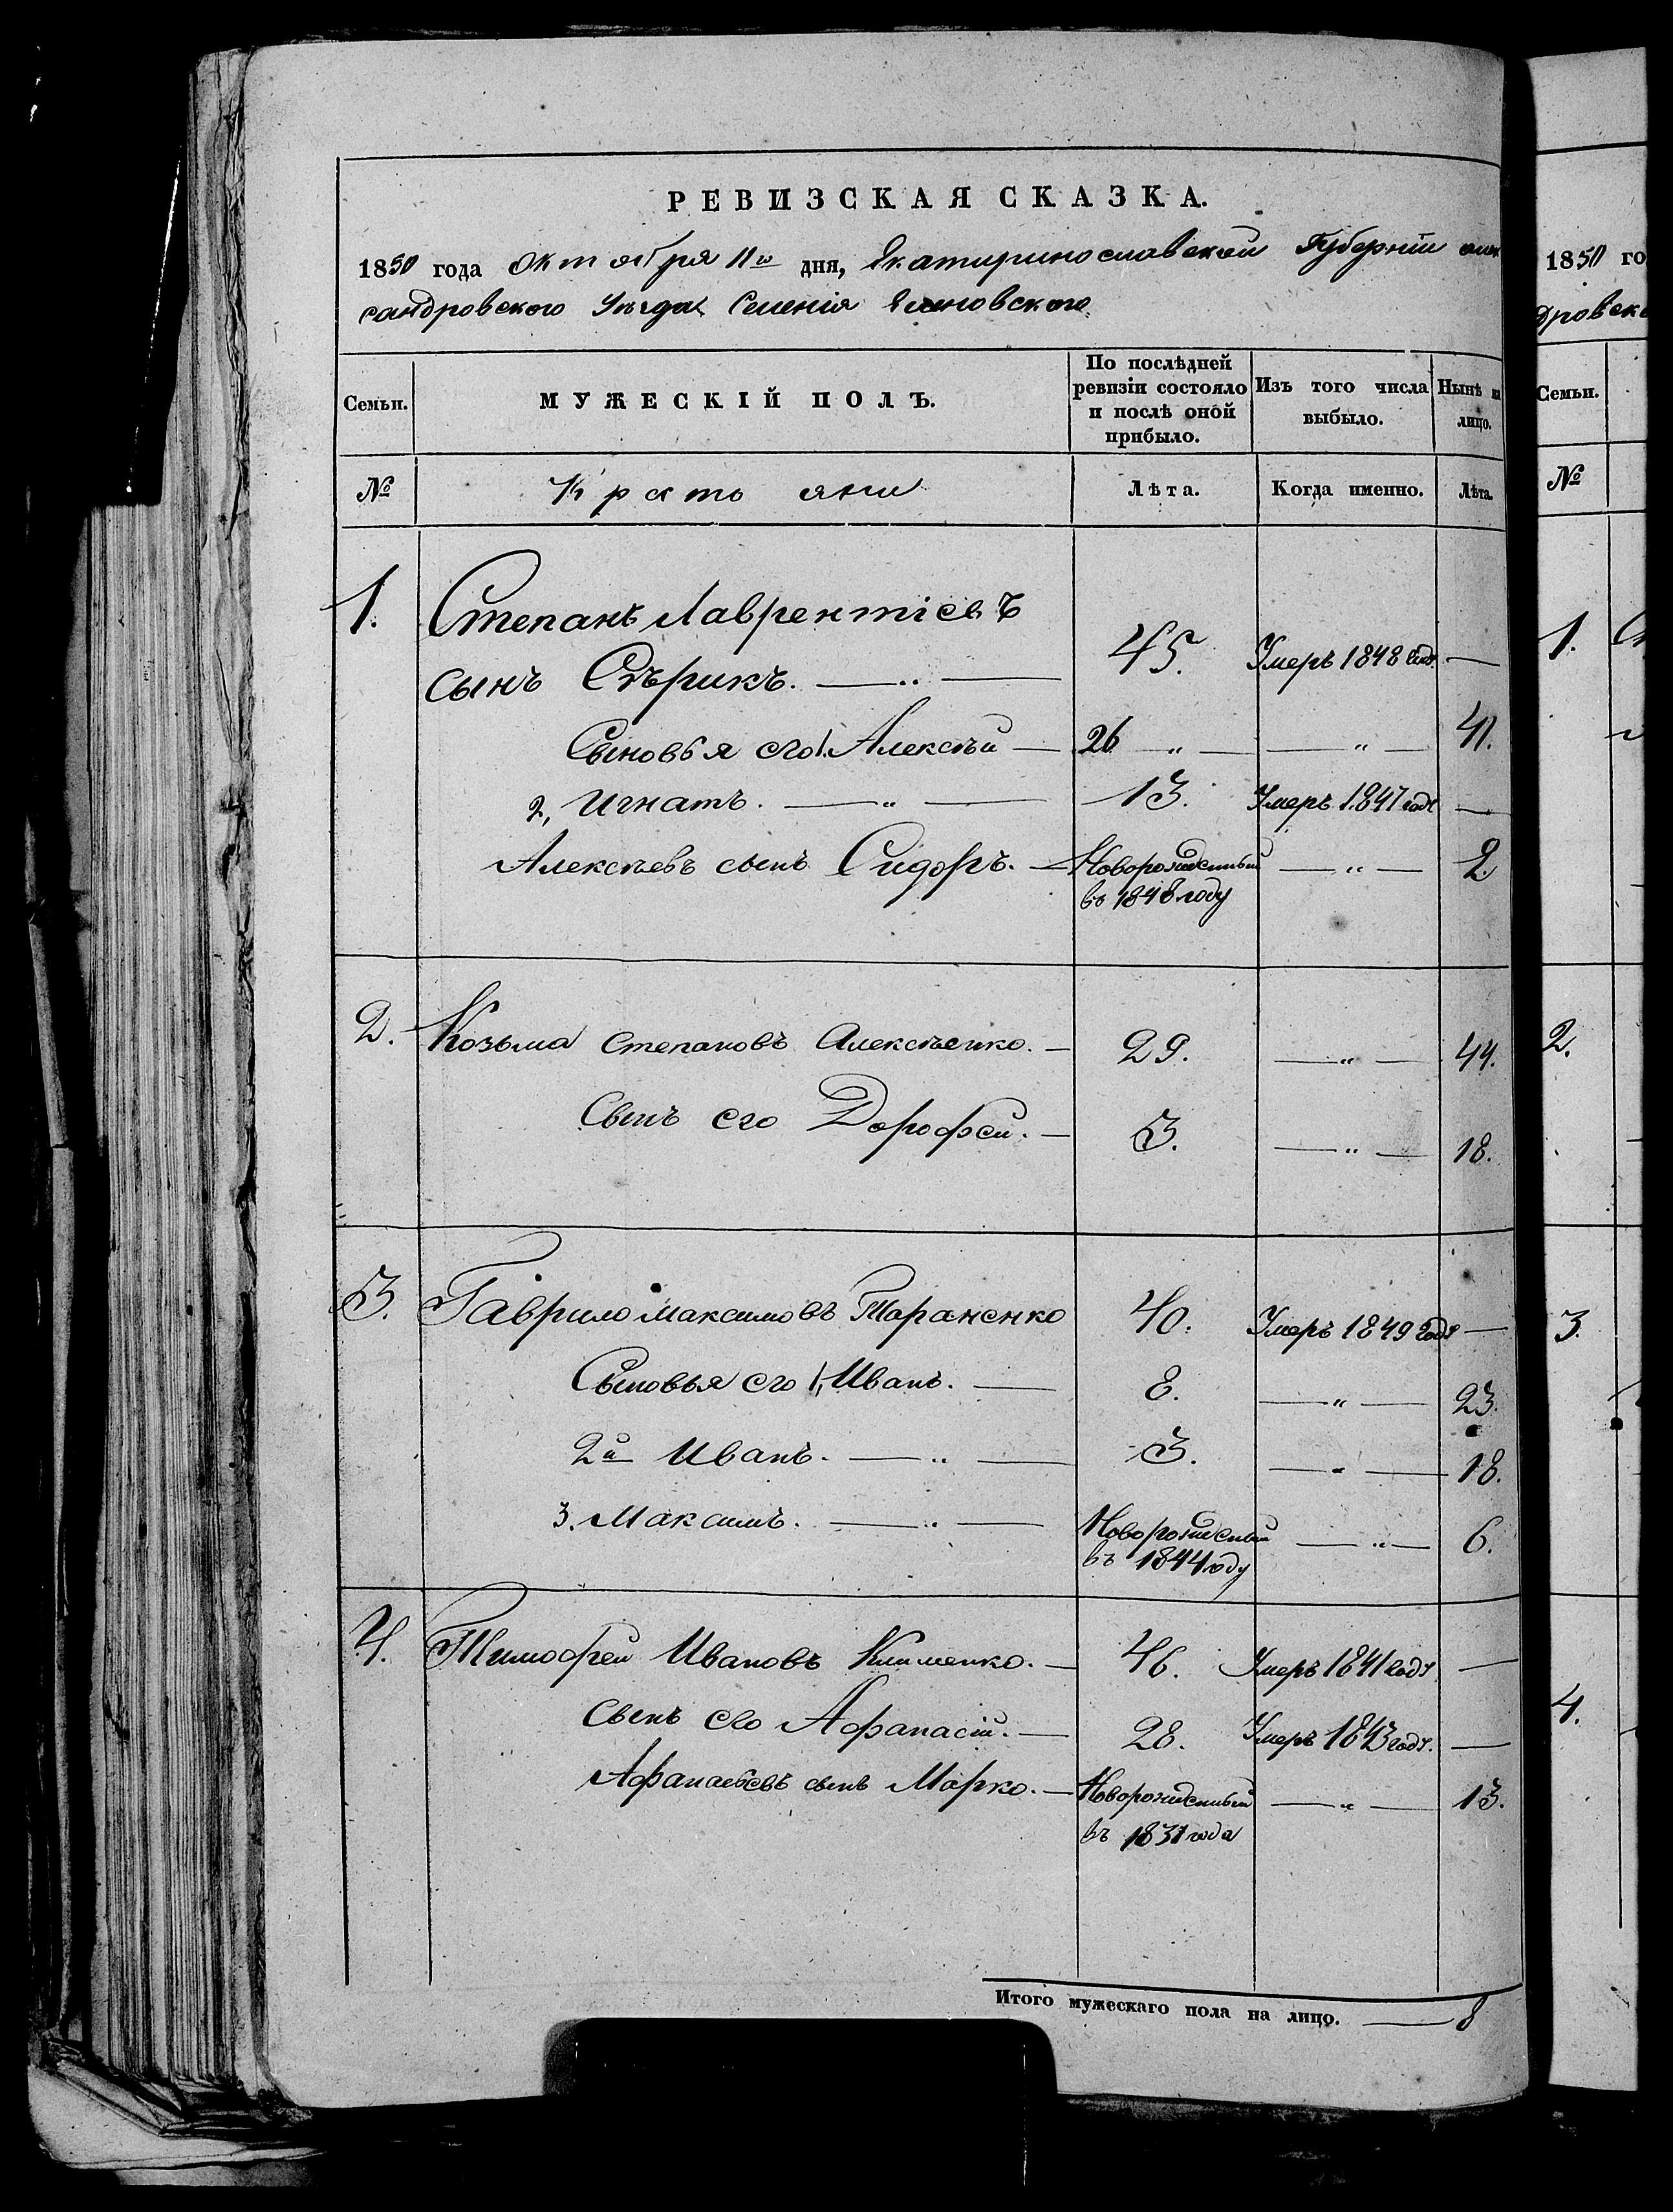 РЕВИЗСКАЯ СКАЗКА.
1850 года Октября 11го дня, Екатеринославской Губерніи Алек
сандровского Уѣзда Селенія
Семьи.
МУЖЕСКІЙ ПОЛЪ.
По послѣдней ревизіи состояло и послѣ оной прибыло.
Изъ того числа выбыло.
Нынѣ на лицо.
№ Крестьяне Лѣта. Когда именно. Лѣта.
1. Степанъ Лаврентіевъ
сынъ Сѣрикъ. — „ — 45. Умеръ 1848 года. —
Сыновья его 1. Алексѣй — 26 „ — — „ — 41.
2, Игнатъ. — „ — 13. Умеръ 1847 года —
Алексѣевъ сынъ Сидоръ. — Новорожденный — „ — 2.
въ 1848 году
2. Козьма Степановъ Алексѣенко. — 29. — „ — 44.
Сынъ его Дорофей. — 3. — „ — 18.
3. Гаврило Максимовъ Тараненко 40. Умеръ 1849 года —
Сыновья его 1, Иванъ. — 8. — „ — 23.
2й Иванъ. — „ — 3. — „ — 18.
3. Максимъ. — „ — Новорожденный — „ — 6.
въ 1844 году
4. Тимофей Ивановъ Клименко. — 46. Умеръ 1841 года —
Сынъ его Афанасій. — 28. Умеръ 1843 года. —
Афанасьевъ сынъ Марко. — Новорожденный — „ — 13.
въ 1837 года
Итого мужескаго пола на лицо. — 8
1850 го
дровско
Семьи.
№
1.
2.
3.
4.